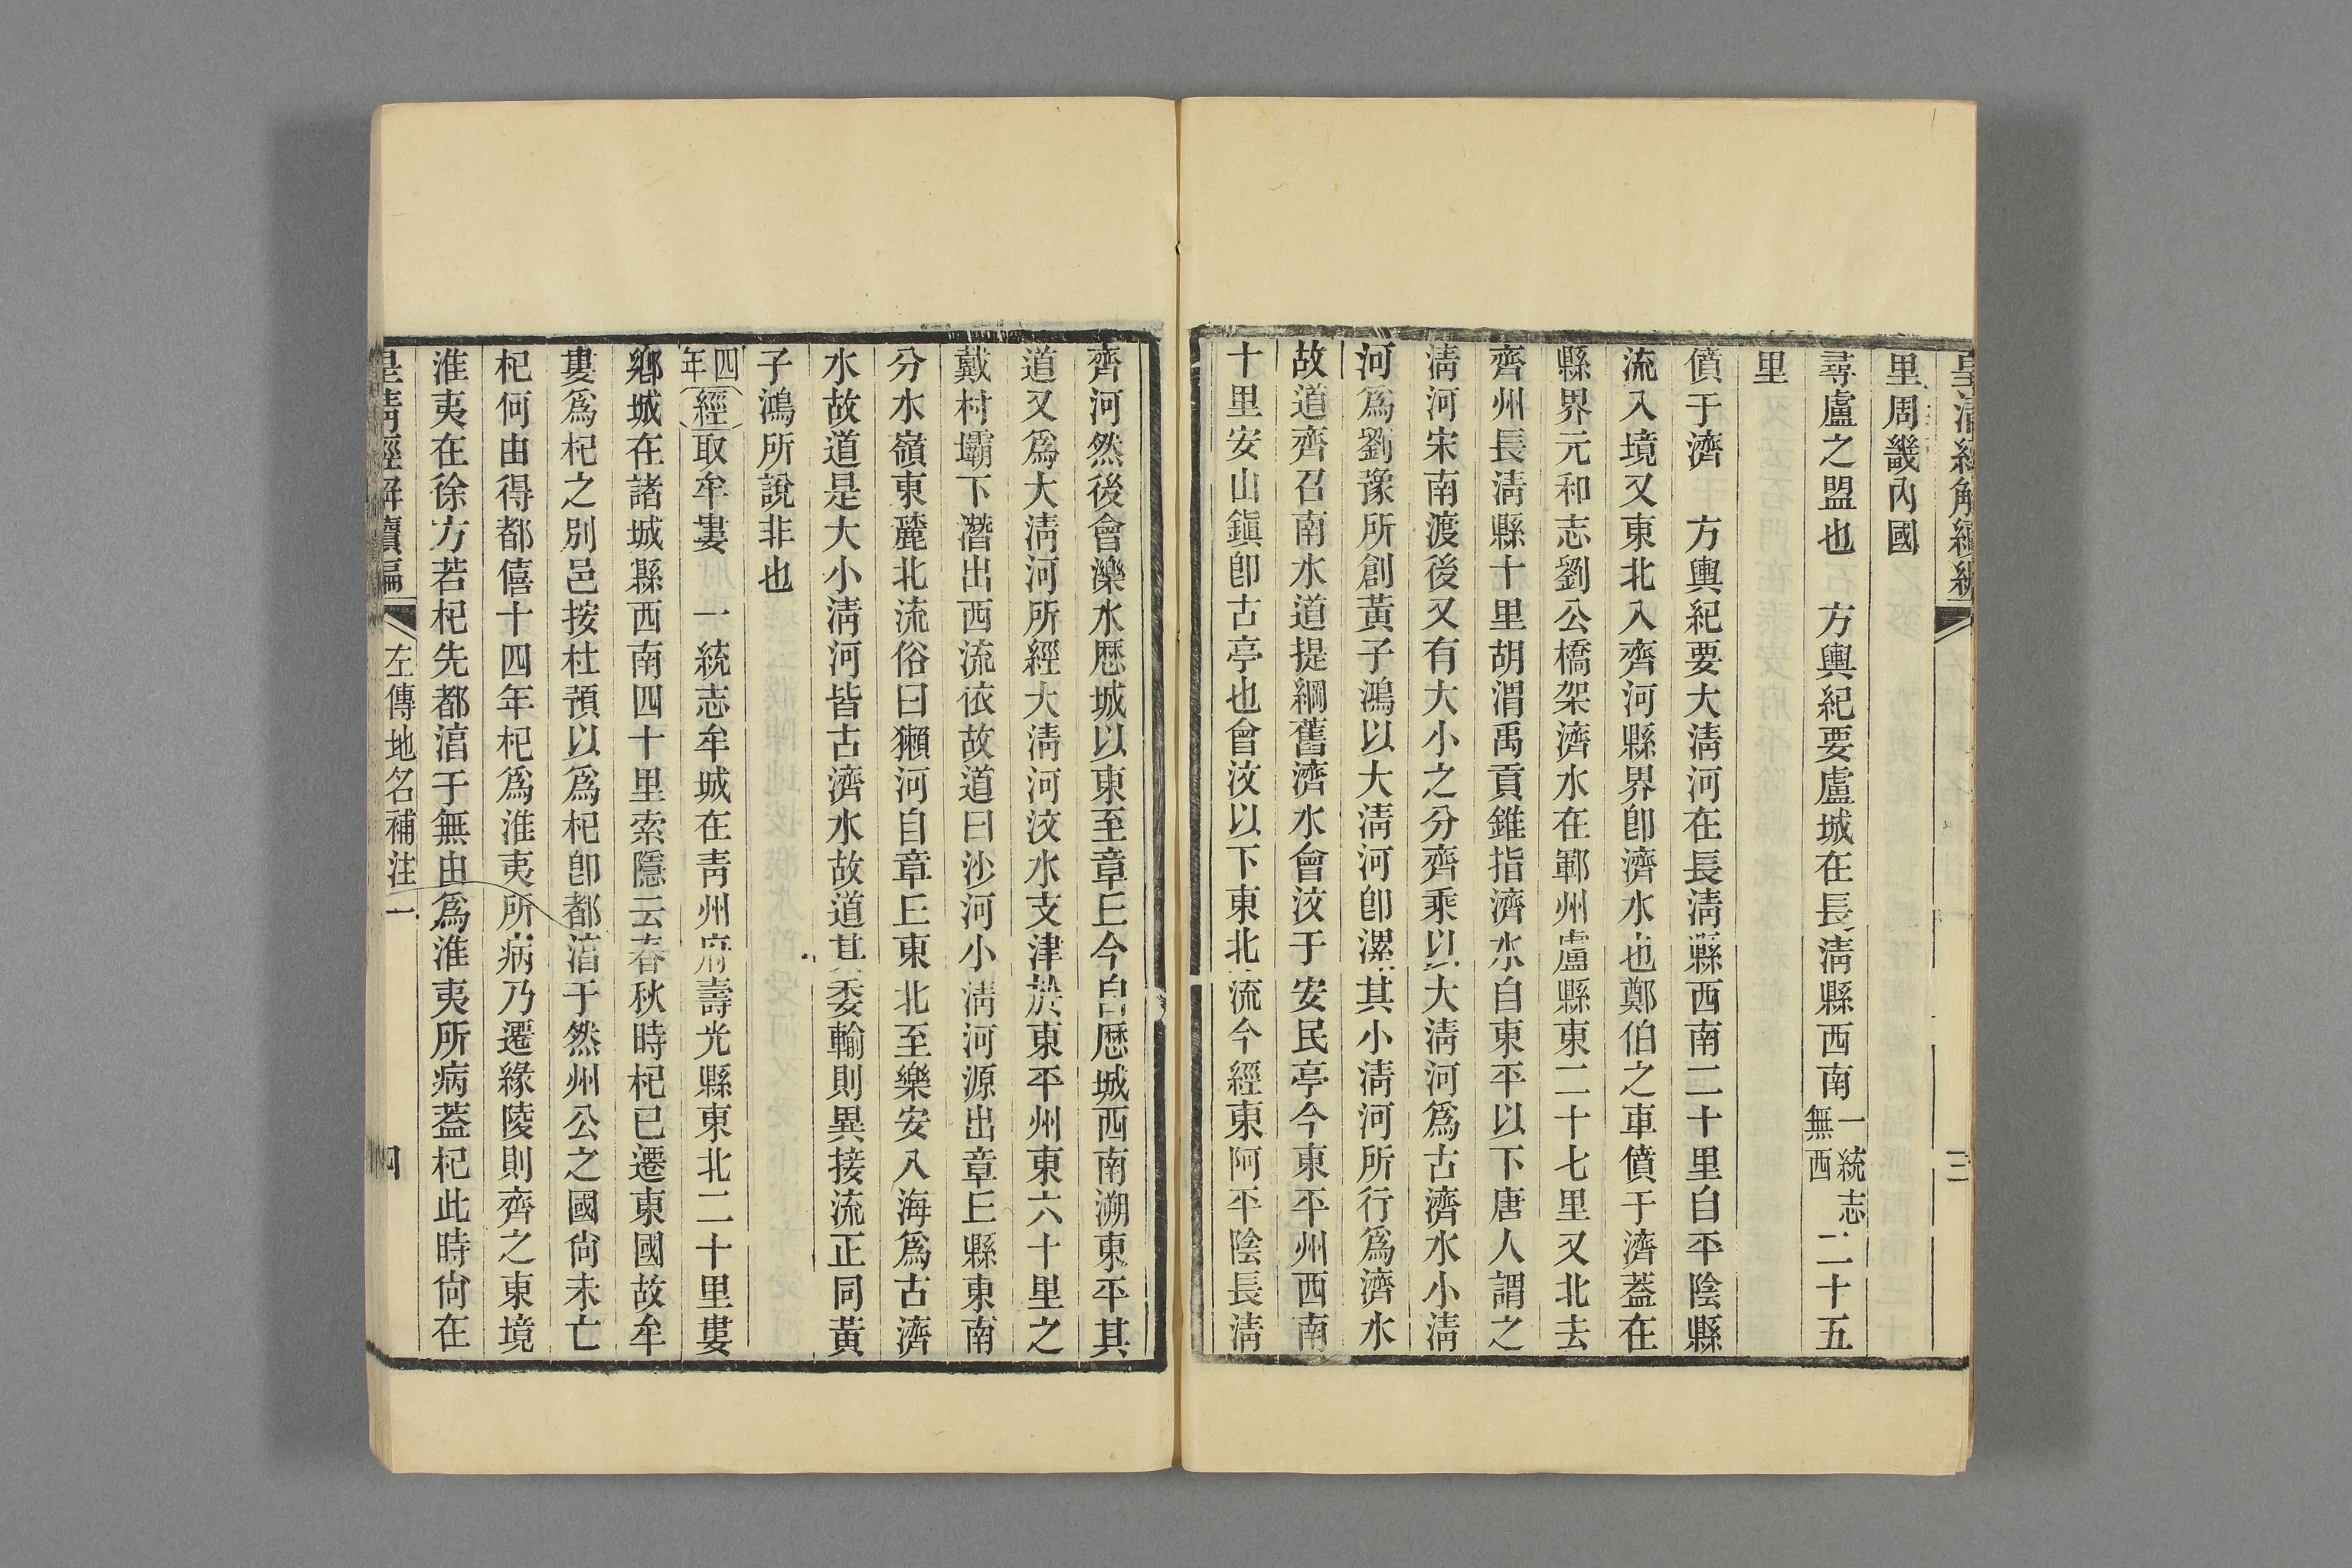 皇清經解續編
三
里周畿內國
尋盧之盟也　方輿紀要盧城在長淸縣西南一統志無西二十五
里
僨于濟　方輿紀要大淸河在長淸縣西南二十里自平陰縣
流入境又東北入齊河縣界卽濟水也鄭伯之車僨于濟蓋在
縣界元和志劉公橋架濟水在鄆州盧縣東二十七里又北去
齊州長淸縣十里胡渭禹貢錐指濟水自東平以下唐人謂之
淸河宋南渡後又有大小之分齊乘以大淸河爲古濟水小淸
河爲劉豫所創黃子鴻以大淸河卽漯其小淸河所行爲濟水
故道齊召南水道提綱舊濟水會汶于安民亭今東平州西南
十里安山鎭卽古亭也會汶以下東北流今經東阿平陰長淸
齊河然後會濼水歷城以東至章𠀉今自歷城西南溯東平其
道又爲大淸河所經大淸河汶水支津於東平州東六十里之
戴村壩下潛出西流依故道曰沙河小淸河源出章𠀉縣東南
分水嶺東麓北流俗曰獺河自章𠀉東北至樂安入海爲古濟
水故道是大小淸河皆古濟水故道其委輸則異接流正同黃
子鴻所說非也
四年經取牟婁　一統志牟城在靑州府壽光縣東北二十里婁
鄉城在諸城縣西南四十里索隱云春秋時杞已遷東國故牟
婁爲杞之別邑按杜預以爲杞卽都淯于然州公之國尙未亡
杞何由得都僖十四年杞爲淮夷所病乃遷緣陵則齊之東境
淮夷在徐方若杞先都淯于無由爲淮夷所病蓋杞此時尙在
皇淸經解續編
左傳地名補注一
四